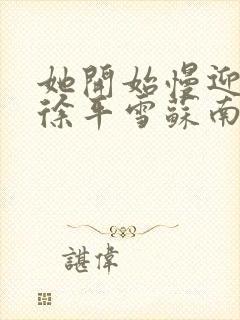 她開始慢迎
徐平雪蘇南
諶偉